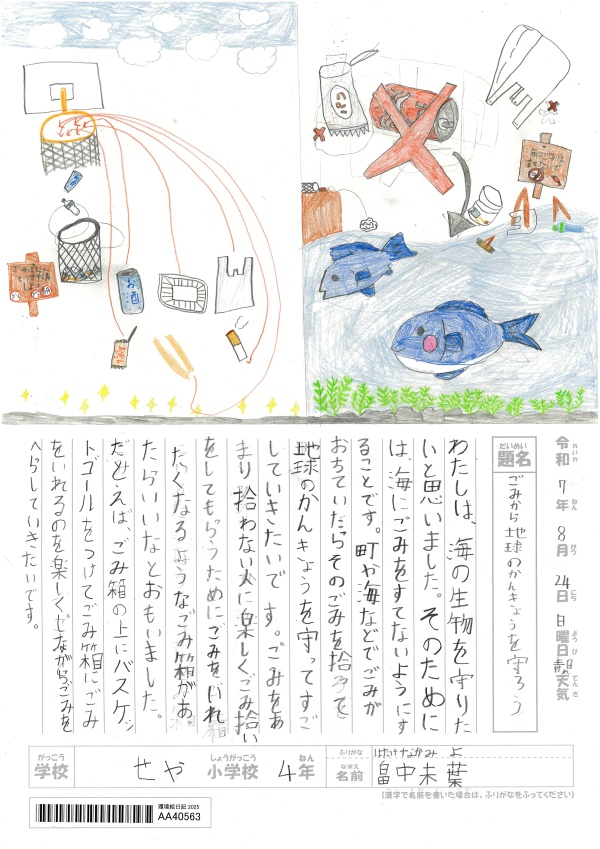 パン
お酒
令和 7年 8月 24日 日曜日 天気
れいわ ねん がつ にち ようび てんき
だいめい
題名
ごみから地球のかんきょうを守ろう
わたしは、海の生物を守りた
いと思いました。そのために
は、海にごみをすてないようにす
ることです。町や海などでごみが
おちていたらそのごみを拾って
地球のかんきょうを守ってすご
していきたいです。ごみをあ
まり拾わない人に楽しくごみ拾い
をしてもらうためにごみをいれ
たくなるようなごみ箱があっ
たらいいなとおもいました。
だとえば、ごみ箱の上にバスケッ
トゴールをつけてごみ箱にごみ
をいれるのを楽しくしながらごみを
へらしていきたいです。
がっこう
学校
せや
しょうがっこう
小学校
4年
ねん
ふりがな
はたけなかみよ
なまえ
名前
畠中未葉
(漢字で名前を書いた場合は、ふりがなをふってください)
環境絵日記 2025
AA40563